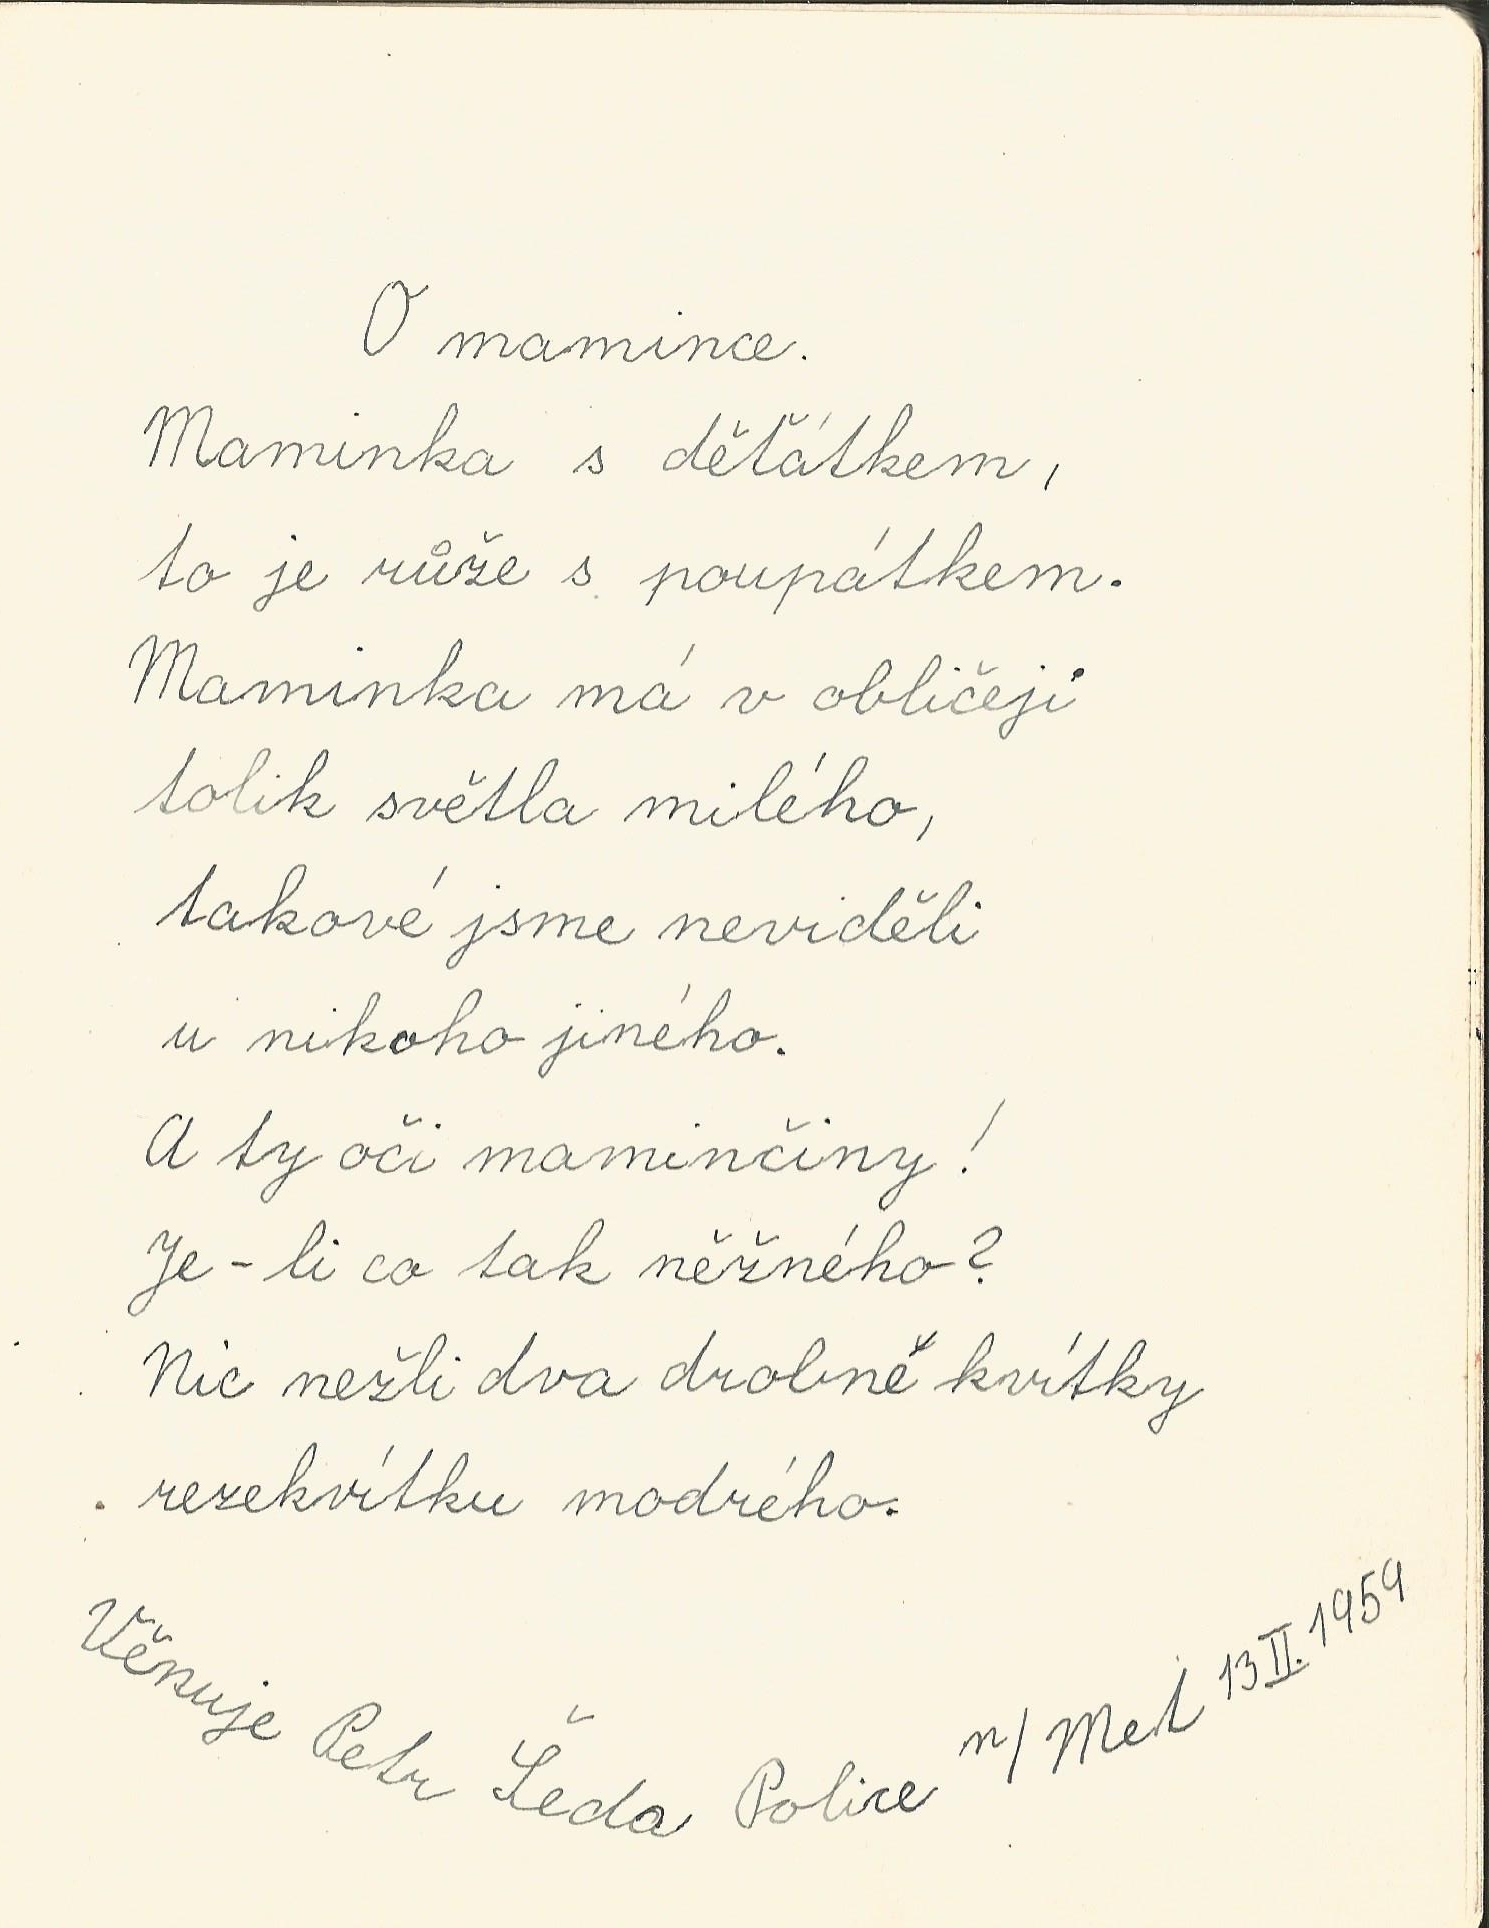 O mamince.
Maminka s děťátkem,
to je růže s poupátkem.
Maminka má v obličeji
tolik světla milého,
takové jsme neviděli
u nikoho jiného.
A ty oči maminčiny!
Je-li co tak něžného?
Nic nežli dva drobně kvítky
rezekvítku modrého.
Věnuje Petr Šeda Police n/Met 13 II. 1959